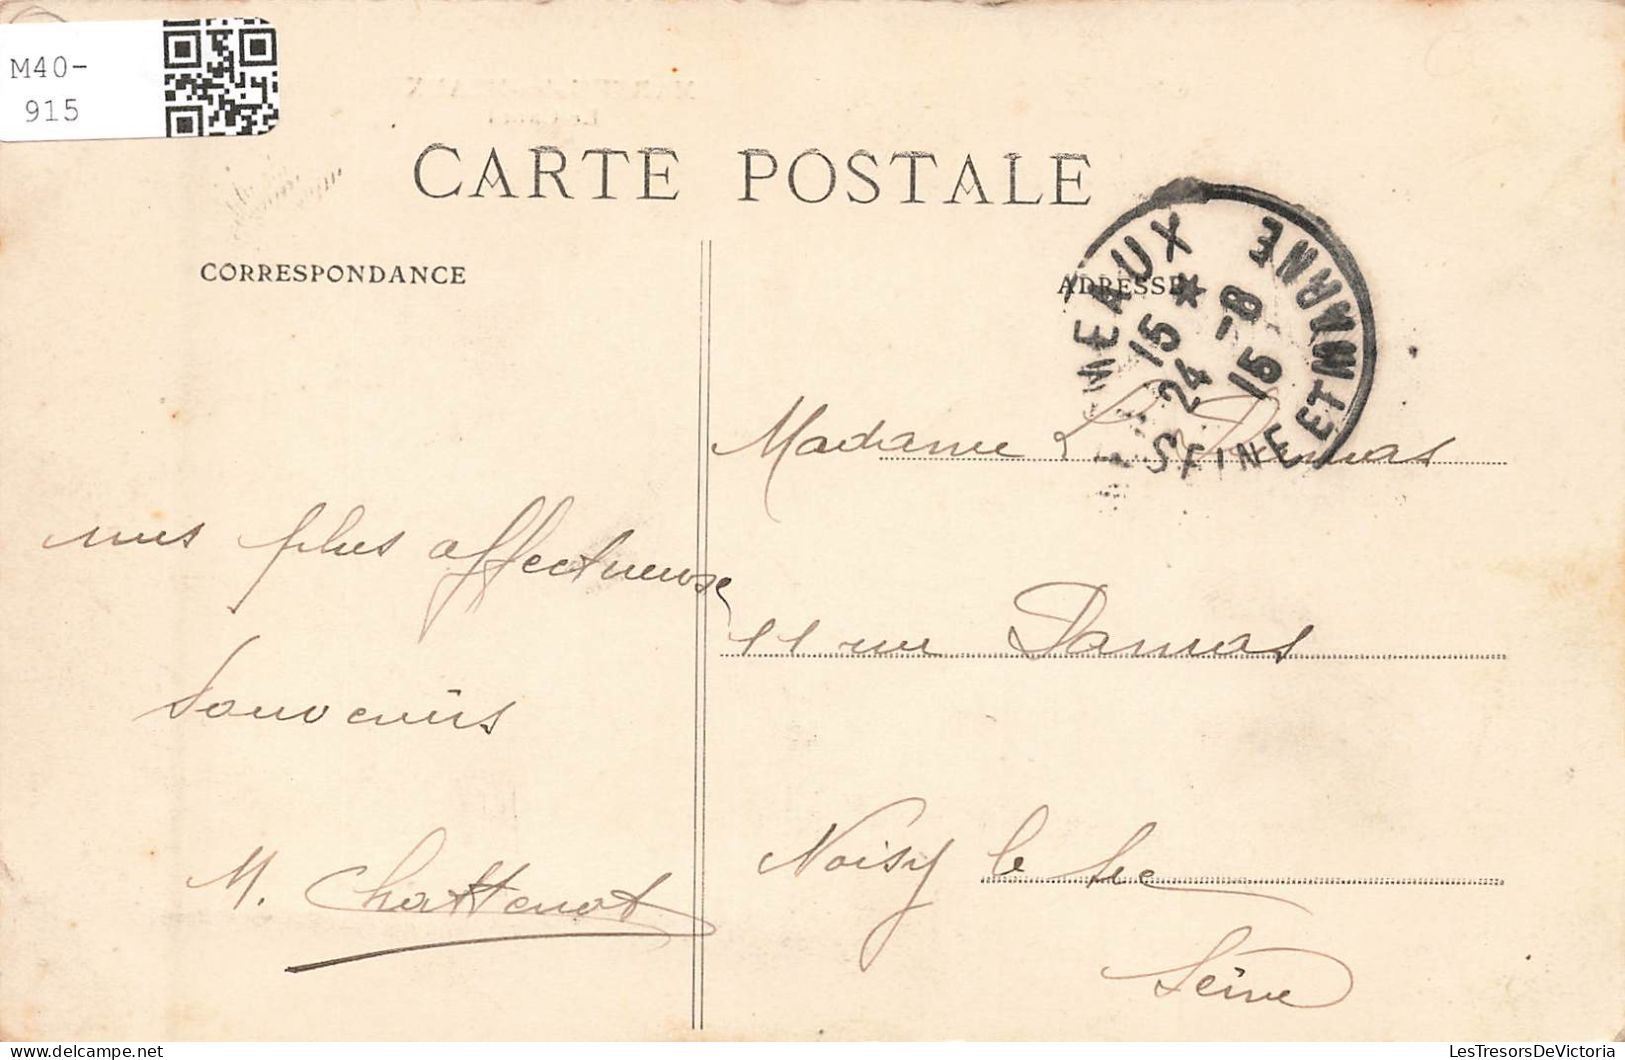 M40-
915
CARTE POSTALE
CORRESPONDANCE
ADRESSE
MEAUX
SEINE ET MARNE
15 *
24 -8
15
Madame L. Dumas
11 rue Damas
Noisy le Sec
Seine
mes plus affectueuse
souvenirs
M. Chattenot
LesTresorsDeVictoria
www.delcampe.net